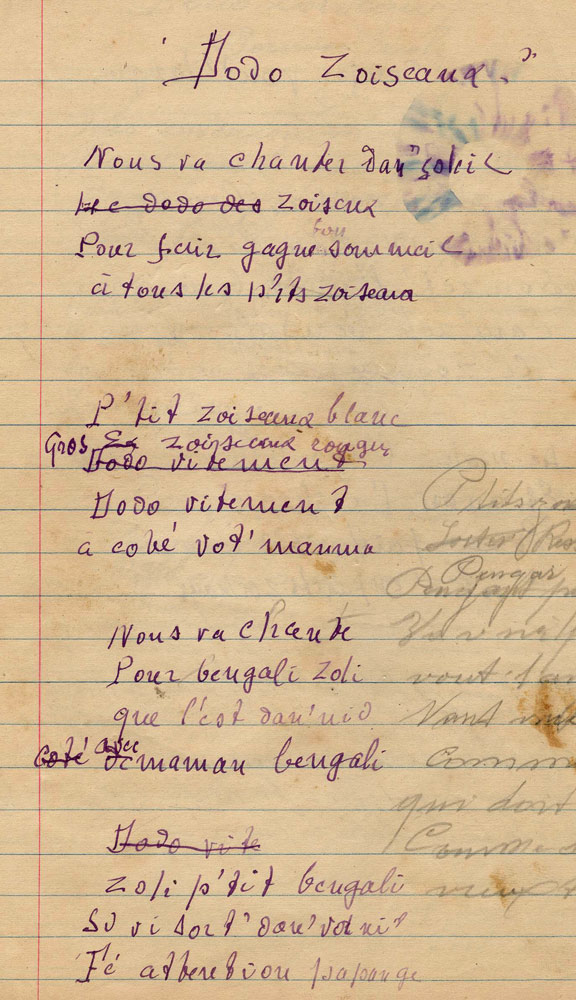 "Dodo Zoiseaux."
Nous va chanter dan' soleil
le dodo des zoiseux
bon
Pour fair gagne sommeil
à tous les p'tits zoiseaux
P'tit zoiseaux blanc
Gros zoisseaux rouges
Dodo vitement
Dodo vitement
a coté vot' mamma
Nous va chante
Pour bengali zoli
que l'est dan' nid
avec
coté maman bengali
Dodo vite
Zoli p'tit bengali
Si vi sort' dan' vot nid
Fé attention papange
P'tits
Pengar
vont
Vont
Comm
qui doit
Comme
vieux